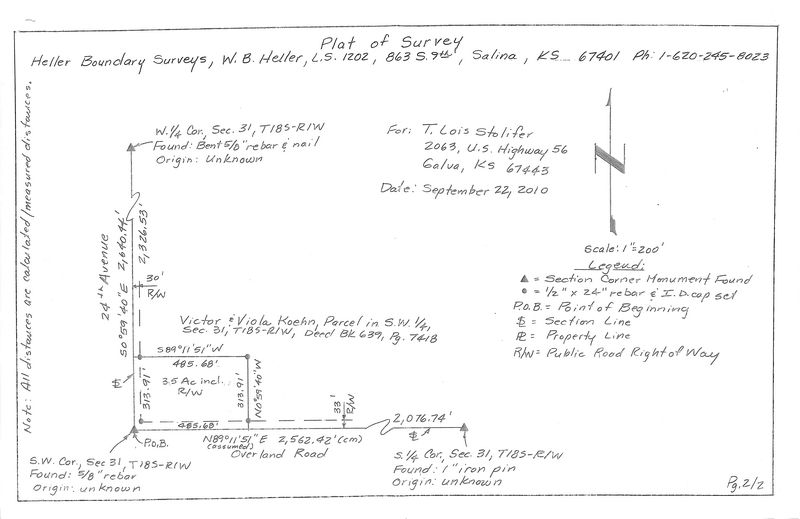 Plat of Survey
Heller Boundary Surveys, W. B. Heller, L.S. 1202, 863 S. 9th, Salina, KS 67401 Ph: 1-620-245-8023
Note: All distances are calculated/measured distances.
W. 1/4 Cor., Sec. 31, T18S-R1W
Found: Bent 5/8" rebar & nail
Origin: Unknown
For: T. Lois Stolifer
2063, U.S. Highway 56
Galva, KS 67443
Date: September 22, 2010
Scale: 1"=200'
Legend:
▲ = Section Corner Monument Found
● = 1/2" x 24" rebar & I.D. cap set
P.O.B. = Point of Beginning
SL = Section Line
PL = Property Line
R/W = Public Road Right of Way
24th Avenue
S0°59'40"E 2,640.44'
2,326.53'
30'
R/W
Victor & Viola Koehn, Parcel in S.W. 1/4,
Sec. 31, T18S-R1W, Deed Bk 639, Pg. 7418
S89°11'51"W
485.68'
SL
313.91'
3.5 Ac incl.
R/W
313.91'
N0°59'40"W
33'
R/W
485.68'
2,076.74'
SL
P.O.B.
N89°11'51"E 2,562.42' (cm)
(assumed)
Overland Road
S.W. Cor., Sec 31, T18S-R1W
Found: 5/8" rebar
Origin: unknown
S. 1/4 Cor., Sec. 31, T18S-R1W
Found: 1" iron pin
Origin: unknown
Pg. 2/2